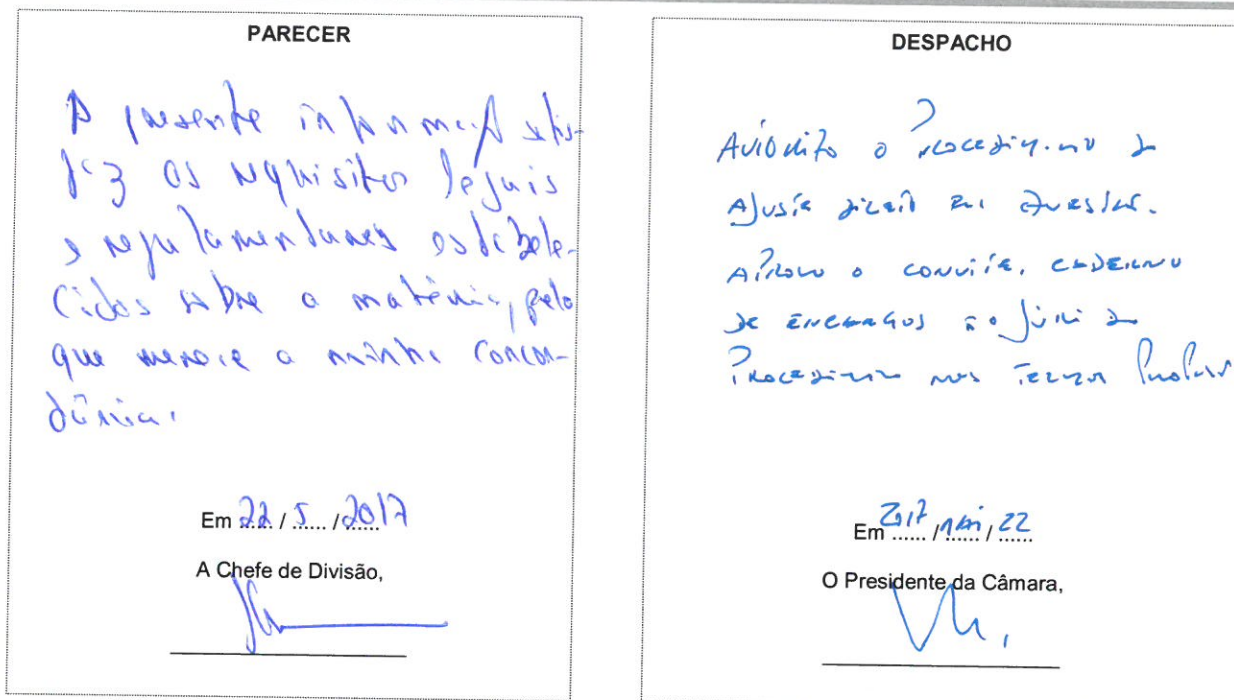 PARECER
A presente informação satis-
faz os requisitos legais
e regulamentares estabele-
cidos sobre a matéria, pelo
que merece a minha concor-
dância.
Em 22 / 5 / 2017
A Chefe de Divisão,
DESPACHO
Autorizo o procedimento de
ajuste direto em questão.
Aprovo o convite, caderno
de encargos e o júri do
procedimento nos termos propostos
Em 2017 / mai / 22
O Presidente da Câmara,